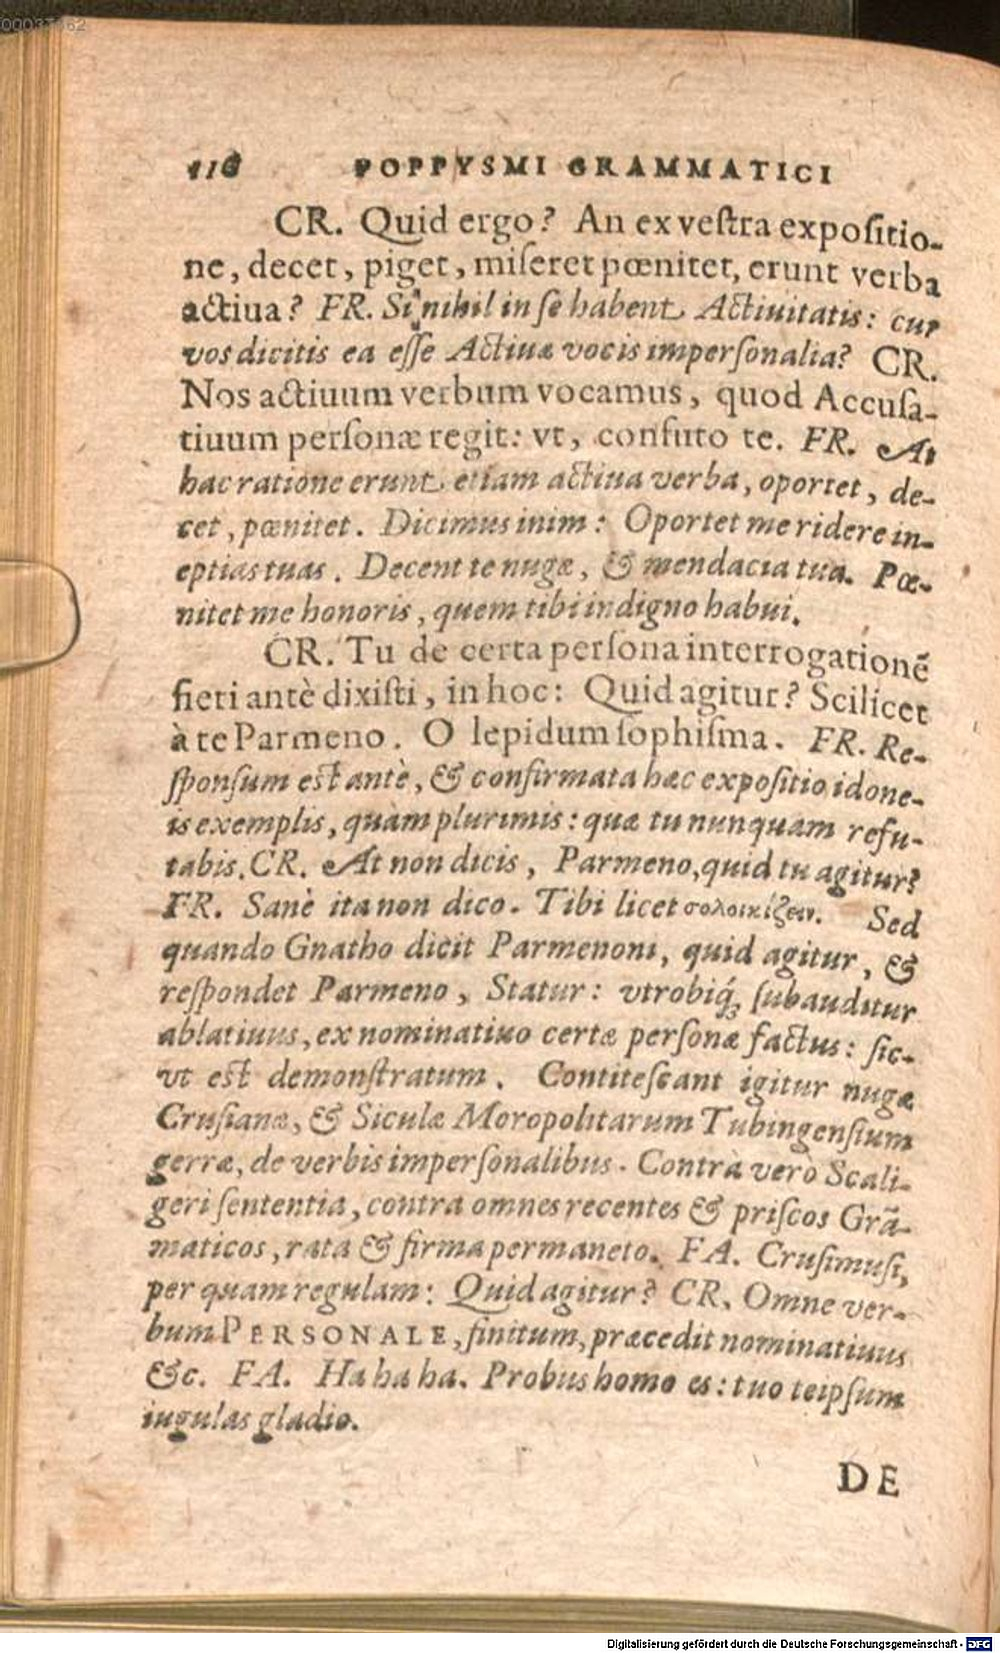 00037362
116 POPPYSMI GRAMMATICI
CR. Quid ergo? An ex veſtra expoſitio-
ne, decet, piget, miſeret pœnitet, erunt verba
actiua? FR. Si nihil in ſe habent Actiuitatis: cur
vos dicitis ea eſſe Actiuæ vocis imperſonalia? CR.
Nos actiuum verbum vocamus, quod Accuſa-
tiuum perſonæ regit: vt, confuto te. FR. At
hac ratione erunt etiam actiua verba, oportet, de-
cet, pœnitet. Dicimus inim: Oportet me ridere in-
eptias tuas. Decent te nugæ, & mendacia tua. Pœ-
nitet me honoris, quem tibi indigno habui.
CR. Tu de certa perſona interrogationē
fieri antè dixiſti, in hoc: Quid agitur? Scilicet
à te Parmeno. O lepidum ſophiſma. FR. Re-
ſponſum eſt antè, & confirmata hæc expoſitio idone-
is exemplis, quàm plurimis: quæ tu nunquam refu-
tabis. CR. At non dicis, Parmeno, quid tu agitur?
FR. Sanè ita non dico. Tibi licet σολοικίζειν. Sed
quando Gnatho dicit Parmenoni, quid agitur, &
reſpondet Parmeno, Statur: vtrobiq́; ſubauditur
ablatiuus, ex nominatiuo certæ perſonæ factus: ſic-
vt eſt demonſtratum. Contiteſcant igitur nugæ
Cruſianæ, & Siculæ Moropolitarum Tubingenſium
gerræ, de verbis imperſonalibus. Contrà verò Scali-
geri ſententia, contra omnes recentes & priſcos Grā-
maticos, rata & firma permaneto. FA. Cruſimuſi,
per quam regulam: Quid agitur? CR. Omne ver-
bum PERSONALE, finitum, præcedit nominatiuus
&c. FA. Ha ha ha. Probus homo es: tuo teipſum
iugulas gladio.
DE
Digitalisierung gefördert durch die Deutsche Forschungsgemeinschaft - DFG